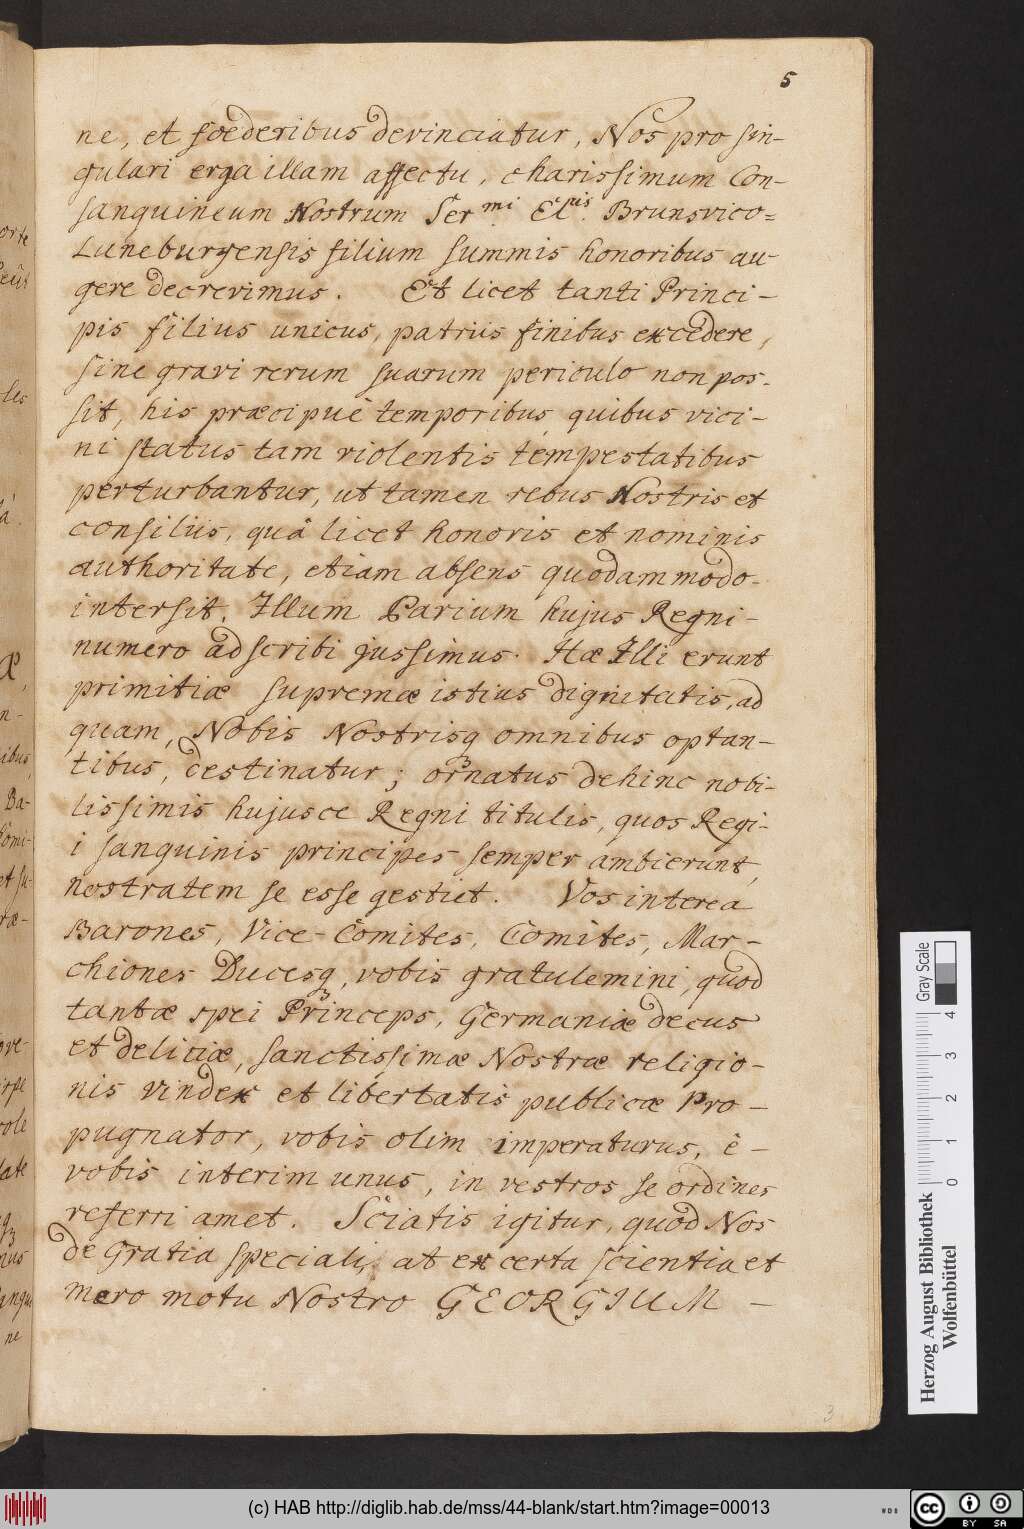 5
ne, et foederibus devinciatur, Nos pro sin-
gulari erga illam affectu, charissimum Con-
sanguineum Nostrum Ser.mi El.is Brunsvico=
Luneburgensis filium summis honoribus au-
gere decrevimus. Et licet tanti Princi-
pis filius unicus, patriis finibus excedere,
sine gravi rerum suarum periculo non pos-
sit, his præcipuè temporibus quibus vici-
ni status tam violentis tempestatibus
perturbantur, ut tamen rebus Nostris et
consiliis, quâ licet honoris et nominis
authoritate, etiam absens quodammodo-
intersit. Illum Parium hujus Regni-
numero adscribi jussimus. Hæ Illi erunt
primitiæ supremæ istius dignitatis, ad
quam, Nobis Nostrisq omnibus optan-
tibus, destinatur; ornatus dehinc nobi-
lissimis hujusce Regni titulis, quos Regi-
i sanguinis principes semper ambierunt,
nostratem se esse gestiet. Vos interea
Barones, Vice-Comites, Comites, Mar-
chiones Ducesq, vobis gratulemini, quod
tantæ spei Princeps, Germaniæ decus
et delitiæ, sanctissimæ Nostræ religio-
nis vindex et libertatis publicæ Pro-
pugnator, vobis olim imperaturus, è-
vobis interim unus, in vestros se ordines
referri amet. Sciatis igitur, quod Nos
de Gratia speciali, at ex certa scientia et
mero motu Nostro GEORGIUM -
3
Herzog August Bibliothek
Wolfenbüttel
Gray Scale
0 1 2 3 4
(c) HAB http://diglib.hab.de/mss/44-blank/start.htm?image=00013
WDB
cc BY SA